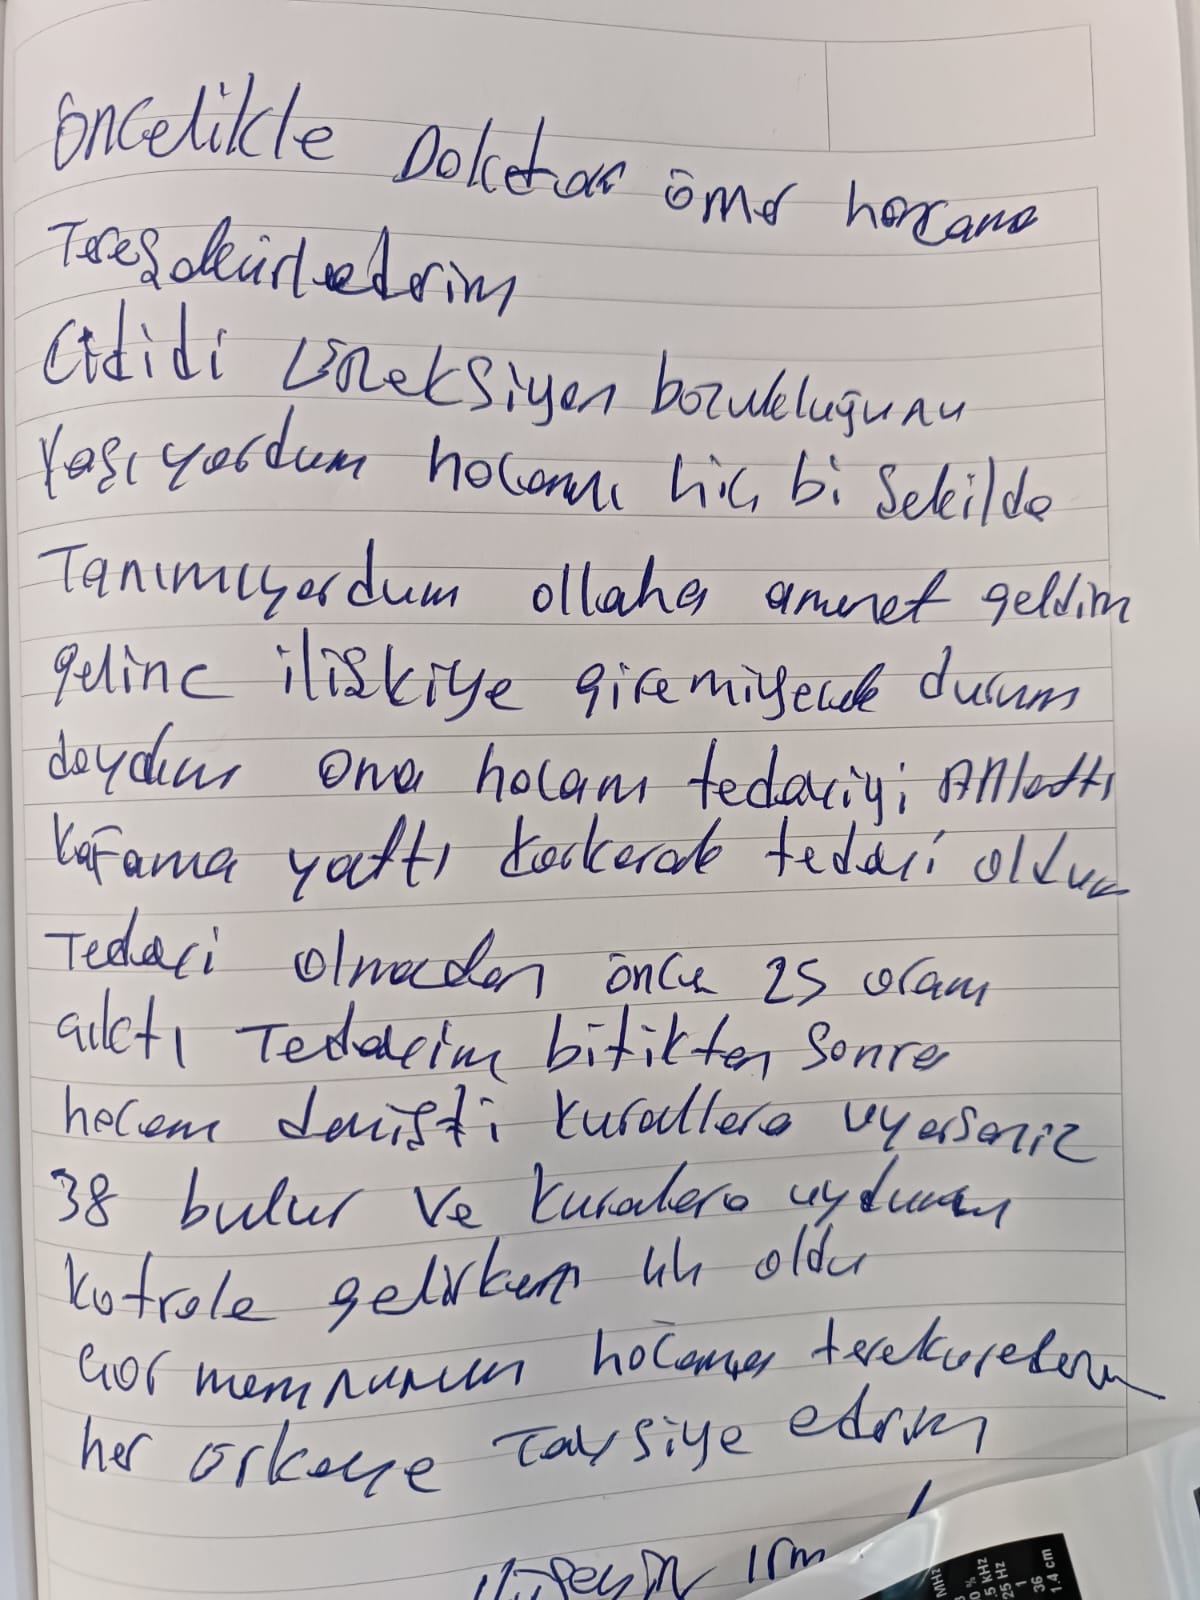 öncelikle Doktor ömer hocama
Tereşekürlederim
Cididi ereksiyon bozukluğunu
Yaşıyordum hocamı hiç bi şekilde
Tanımıyordum allaha amenet geldim
gelinc ilişkiye giremiyecek durum
daydım ama hocam tedaviyi Anlattı
kafama yattı korkarak tedavi oldum
Tedavi olmadan önce 25 oram
çıktı Tedavim bitikten sonra
hocam demişti kurallara uyarsanız
38 bulur ve kuralara uydum
kotrole gelirken oldu
çor memnunum hocama terekuredem
her erkeye Tavsiye ederim
MHz
%
5 kHz
25 Hz
1
36
1.4 cm